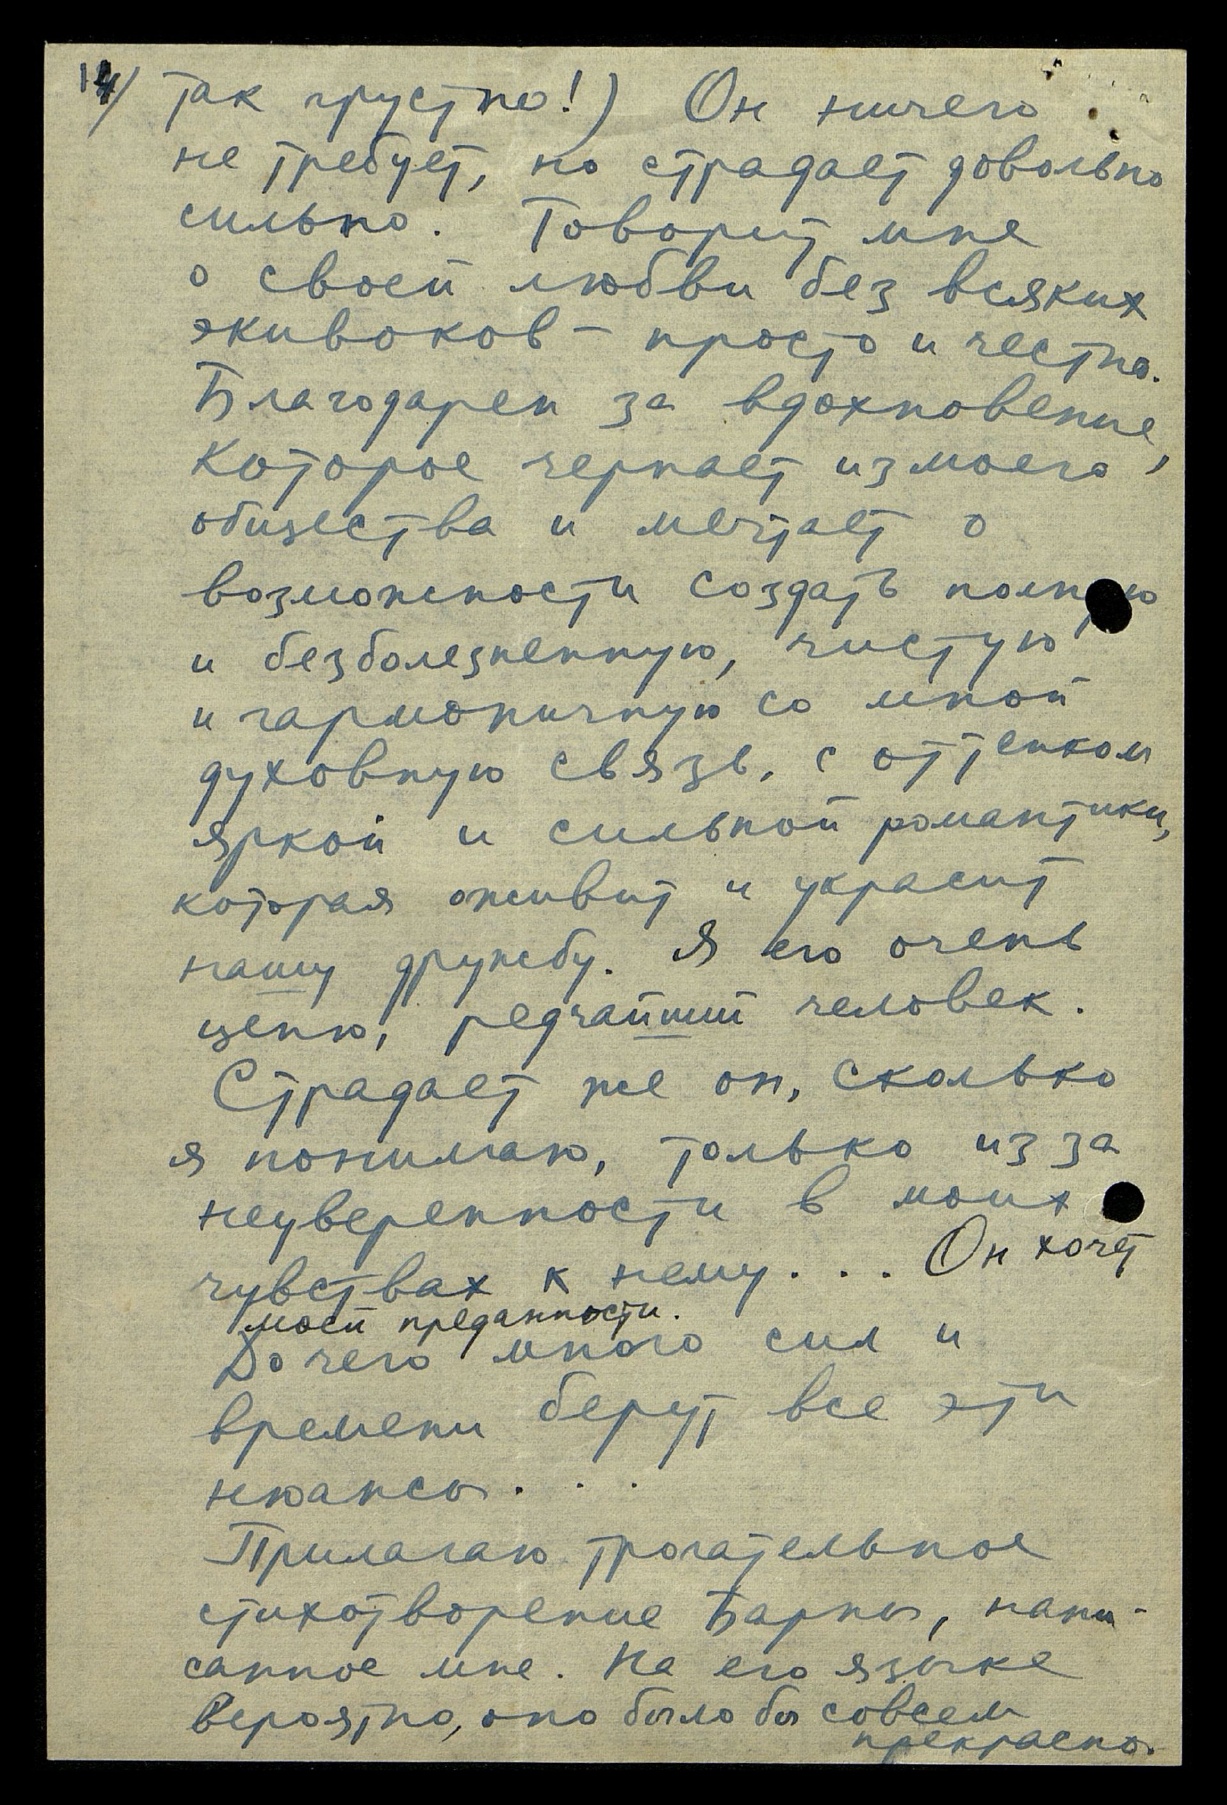 14/ так грустно!) Он ничего
не требует, но страдает довольно
сильно. Говорит мне
о своей любви без всяких
экивоков – просто и честно.
Благодарен за вдохновение,
которое черпает из моего
общества и мечтает о
возможности создать полную
и безболезненную, чистую
и гармоничную со мной
духовную связь, с оттенком
яркой и сильной романтики,
которая оживит и украсит
нашу дружбу. Я его очень
ценю, редчайший человек.
Страдает же он, сколько
я понимаю, только из за
неуверенности в моих
чувствах к нему... Он хочет
моей преданности.
До чего много сил и
времени берут все эти
нюансы...
Прилагаю трогательное
стихотворение Барны, напи-
санное мне. На его языке
вероятно, оно было бы совсем
прекрасно.